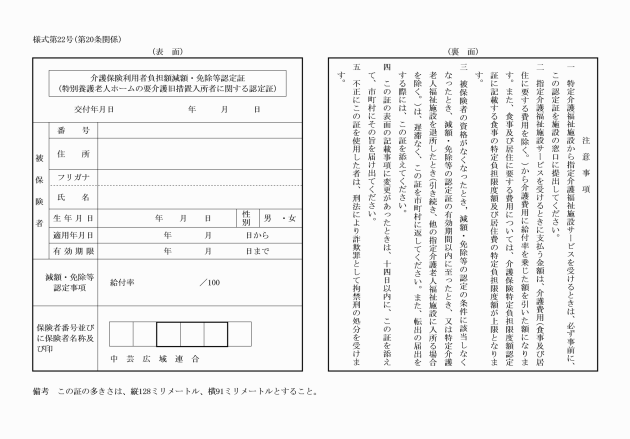 様式第22号(第20条関係)
(表　面)
介護保険利用者負担額減額・免除等認定証
(特別養護老人ホームの要介護旧措置入所者に関する認定証)
交付年月日　年　月　日
被保険者
番　号
住　所
フリガナ
氏　名
生年月日　年　月　日　性別　男・女
適用年月日　年　月　日から
有効期限　年　月　日まで
減額・免除等
認定事項
給付率　／100
保険者番号並び
に保険者名称及
び印
中芸広域連合
(裏　面)
注意事項
一　特定介護福祉施設から指定介護福祉施設サービスを受けるときは、必ず事前に、
この認定証を施設の窓口に提出してください。
二　指定介護福祉施設サービスを受けるときに支払う金額は、介護費用(食事及び居
住に要する費用を除く。)から介護費用に給付率を乗じた額を引いた額になりま
す。また、食事及び居住に要する費用については、介護保険特定負担限度額認定
証に記載する食事の特定負担限度額及び居住費の特定負担限度額が上限となりま
す。
三　被保険者の資格がなくなったとき、減額・免除等の認定の条件に該当しなく
なったとき、減額・免除等の認定証の有効期間以内に至ったとき、又は特定介護
老人福祉施設を退所したとき(引き続き、他の指定介護老人福祉施設に入所する場合
を除く。)は、遅滞なく、この証を市町村に返してください。また、転出の届出を
する際には、この証を添えてください。
四　この証の表面の記載事項に変更があったときは、十四日以内に、この証を添え
て、市町村にその旨を届け出てください。
五　不正にこの証を使用した者は、刑法により詐欺罪として拘禁刑の処分を受けま
す。
備考　この証の多きさは、縦128ミリメートル、横91ミリメートルとすること。